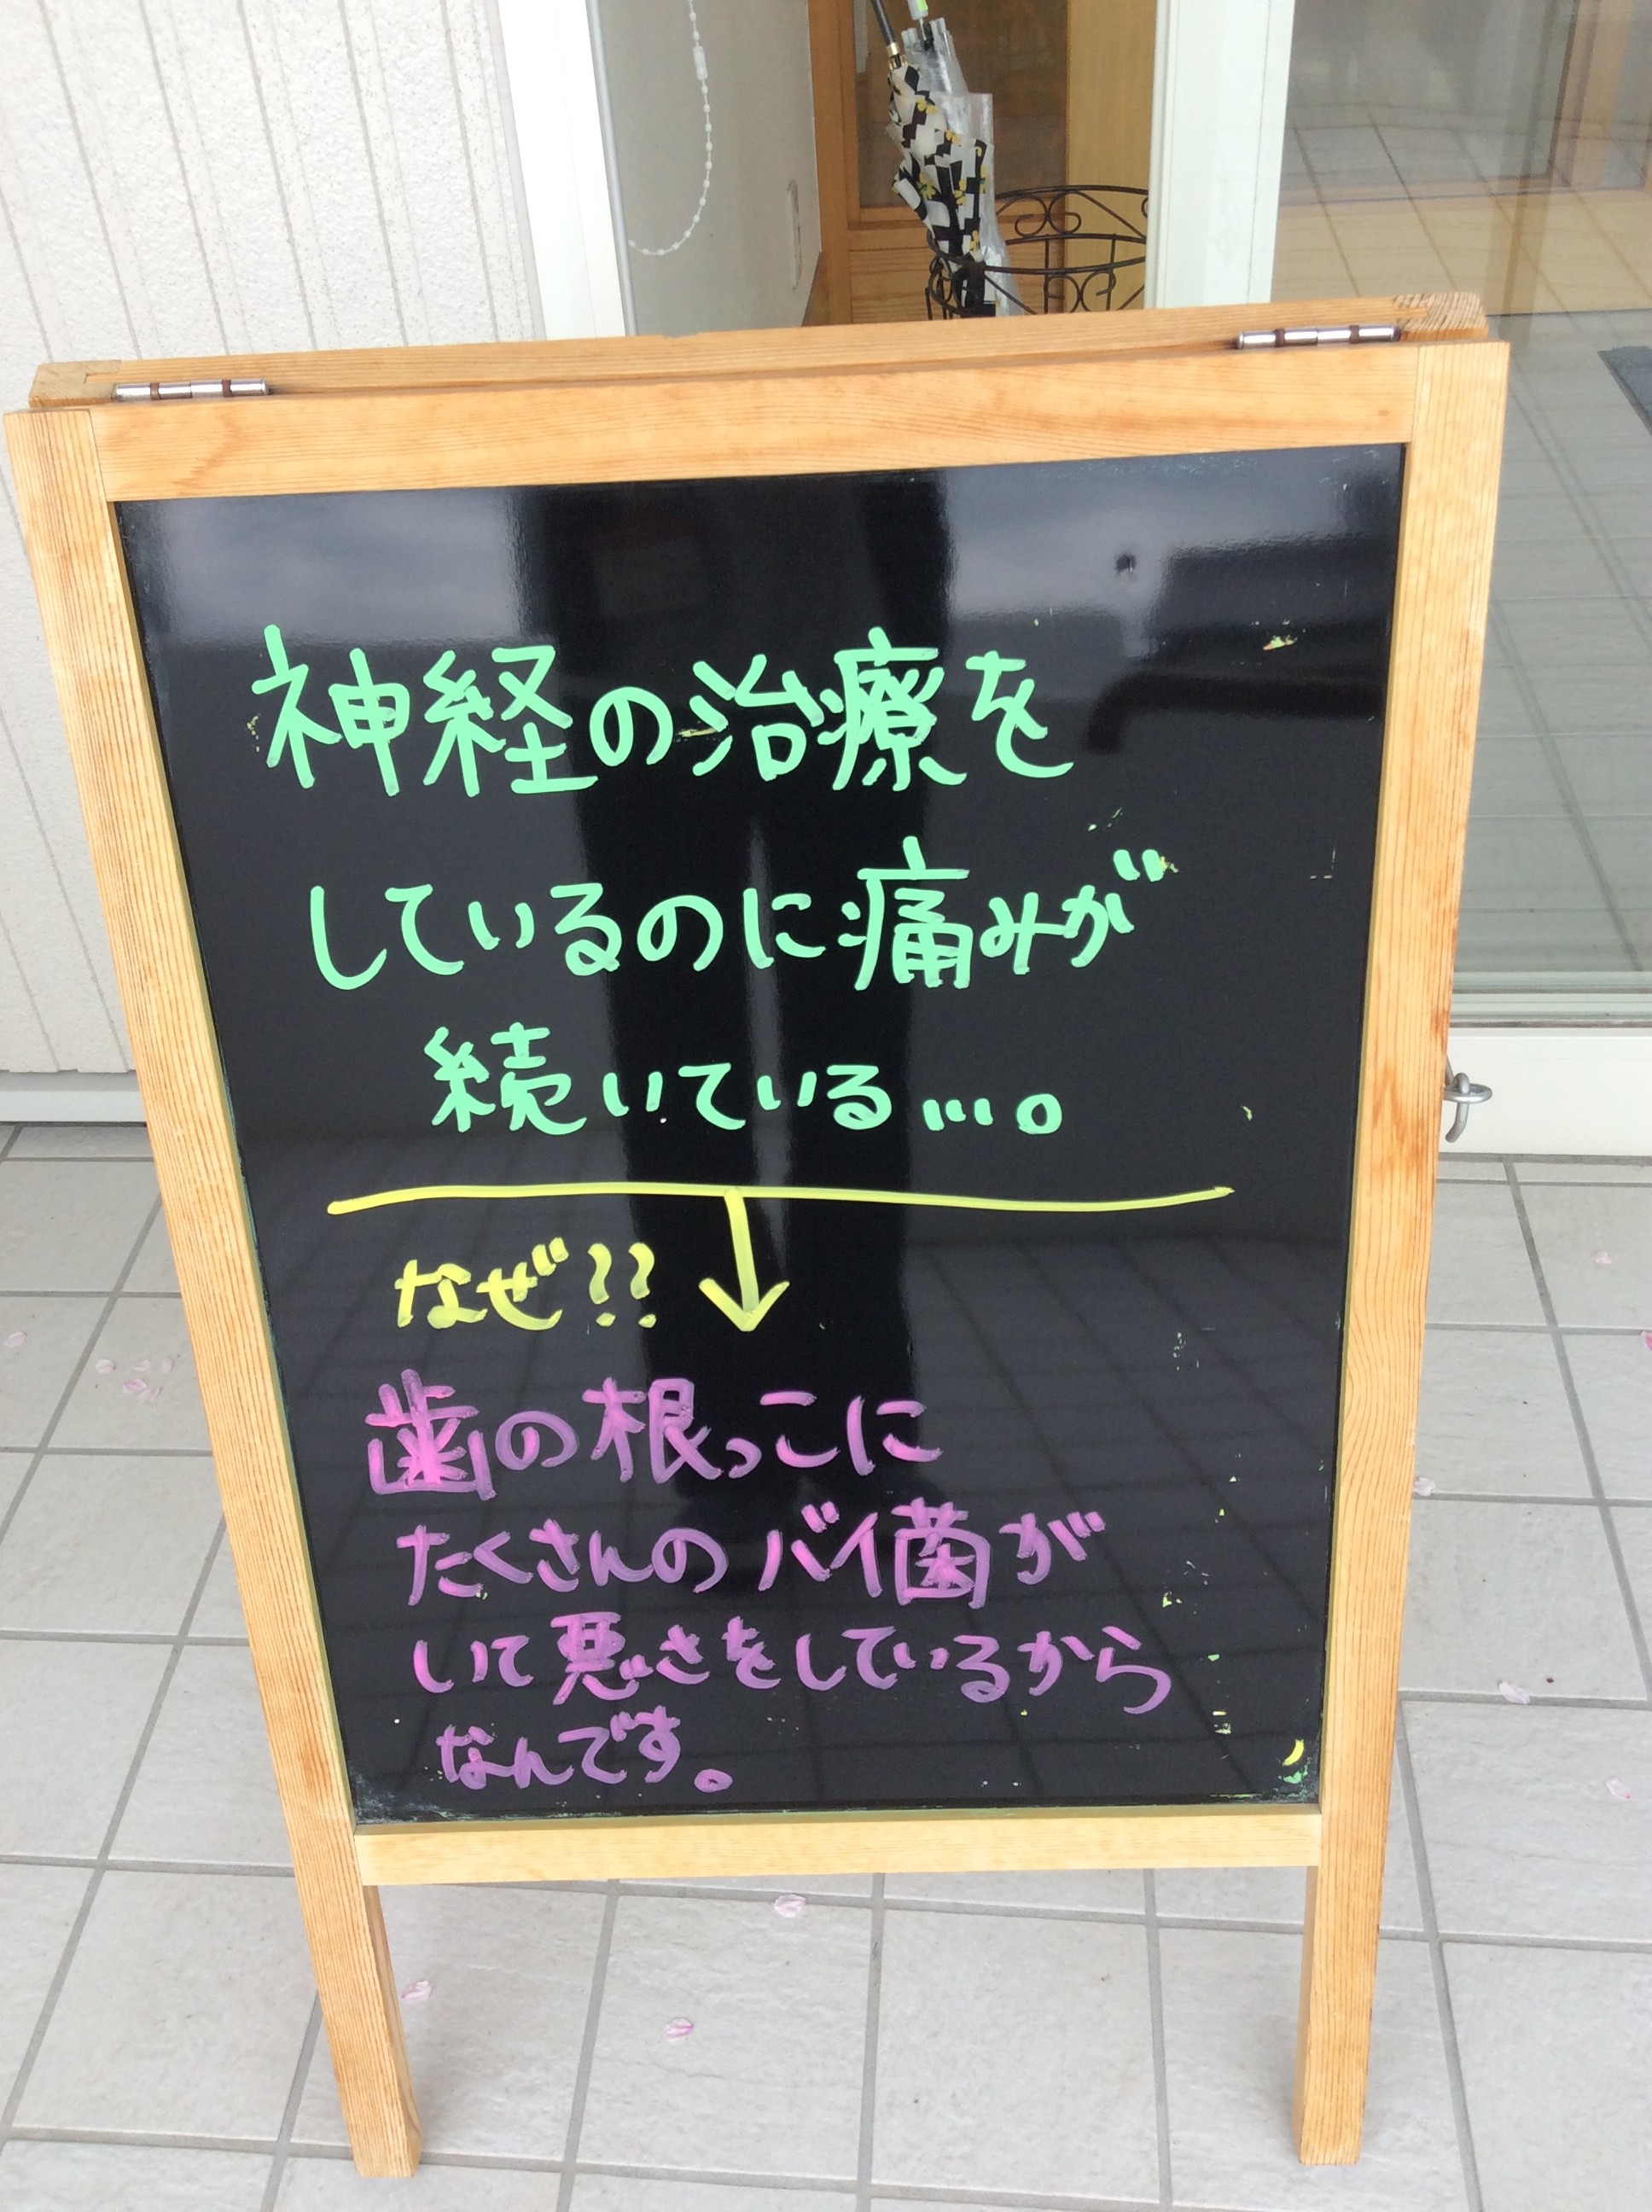 神経の治療を
しているのに痛みが
続いている…。
なぜ??
歯の根っこに
たくさんのバイ菌が
いて悪さをしているから
なんです。